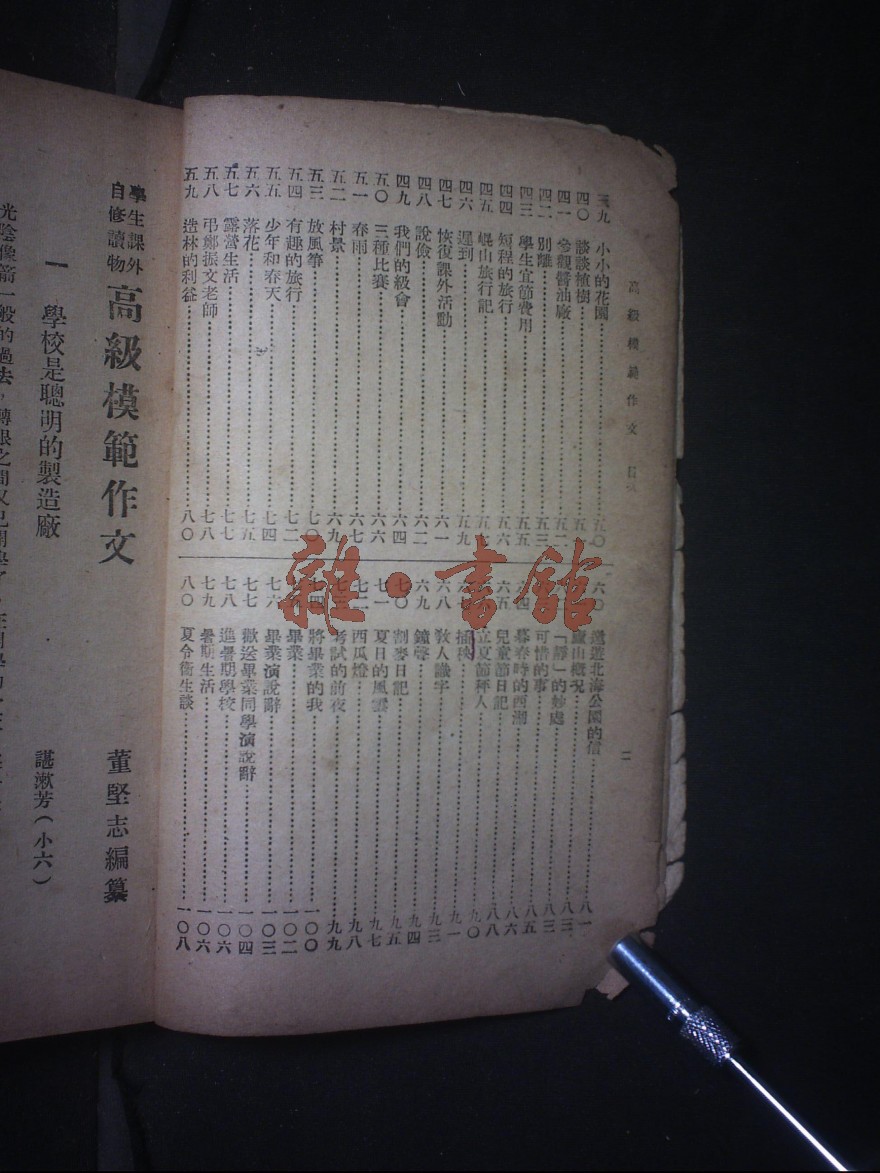 高級模範作文 目次
二
三九 小小的花園 五〇
四〇 談談植樹 五
四一 參觀醬油廠 五二
四二 別離 五三
四三 學生宜節費用 五五
四四 短程的旅行 五六
四五 崐山旅行記 五七
四六 遲到 五九
四七 恢復課外活動 六一
四八 說儉 六二
四九 我們的級會 六四
五〇 三種比賽 六六
五一 春雨 六七
五二 村景 六九
五三 放風箏 七〇
五四 有趣的旅行 七二
五五 少年和春天 七四
五六 落花 七五
五七 露營生活 七七
五八 弔鄭振文老師 七八
五九 造林的利益 八〇
六〇 邀遊北海公園的信 八一
廬山概況 八二
「靜」的妙處 八三
可惜的事 八三
四 暮春時的西湖 八五
六五 兒童節日記 八六
立夏節秤人 八八
插秧 九〇
六八 教人識字 九一
六九 鐘聲 九三
七〇 割麥日記 九四
七一 夏日的風雲 九五
七二 西瓜燈 九七
七三 考試的前夜 九八
七四 將畢業的我 九九
畢業 一〇〇
七六 畢業演說辭 一〇二
七七 歡送畢業同學演說辭 一〇三
七八 進暑期學校 一〇四
七九 暑期生活 一〇六
八〇 夏令衛生談 一〇八
學生課外自修讀物 高級模範作文 董堅志編纂
一 學校是聰明的製造廠 諶漱芳(小六)
光陰像箭一般的過去,轉眼之間又已開學了
雜·書館